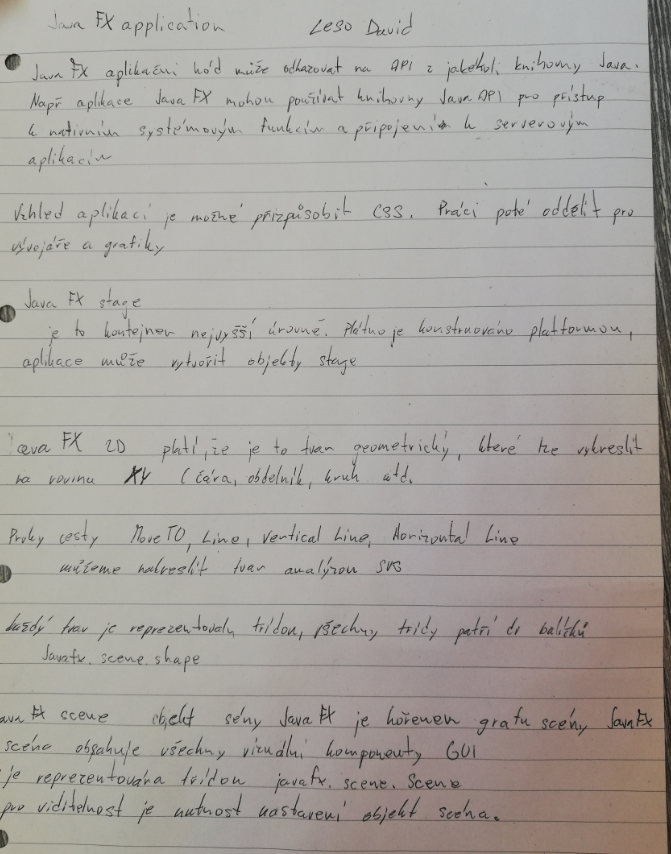 Java FX application Leso David
Java FX aplikační kód může odkazovat na API z jakekoli knihovny Java.
Např aplikace Java FX mohou používat knihovny Java API pro přístup
k nativním systémovým funkcím a připojení k serverovým
aplikacím
Vzhled aplikací je možné přizpůsobit CSS. Práci poté oddělit pro
vývojáře a grafiky
Java FX stage
je to kontejner nejvyšší úrovně. Plátno je konstruováno platformou,
aplikace může vytvořit objekty stage
ava FX 2D platí, že je to tvar geometrický, které lze vykreslit
na rovinu XY (čára, obdelník, kruh atd.
Prvky cesty MoveTO, Line, Vertical Line, Horizontal Line
můžeme nakreslit tvar analýzou SVG
každý tvar je reprezentovaly trídou, všechny trídy patří do balíčků
Javafx.scene.shape
ava FX scene objekt sény Java FX je kořenem grafu scény Java FX
scéna obsahuje všechny vizuální komponenty GUI
je reprezentována trídou javafx.scene.Scene
pro viditelnost je nutnost nastavení objekt scéna.